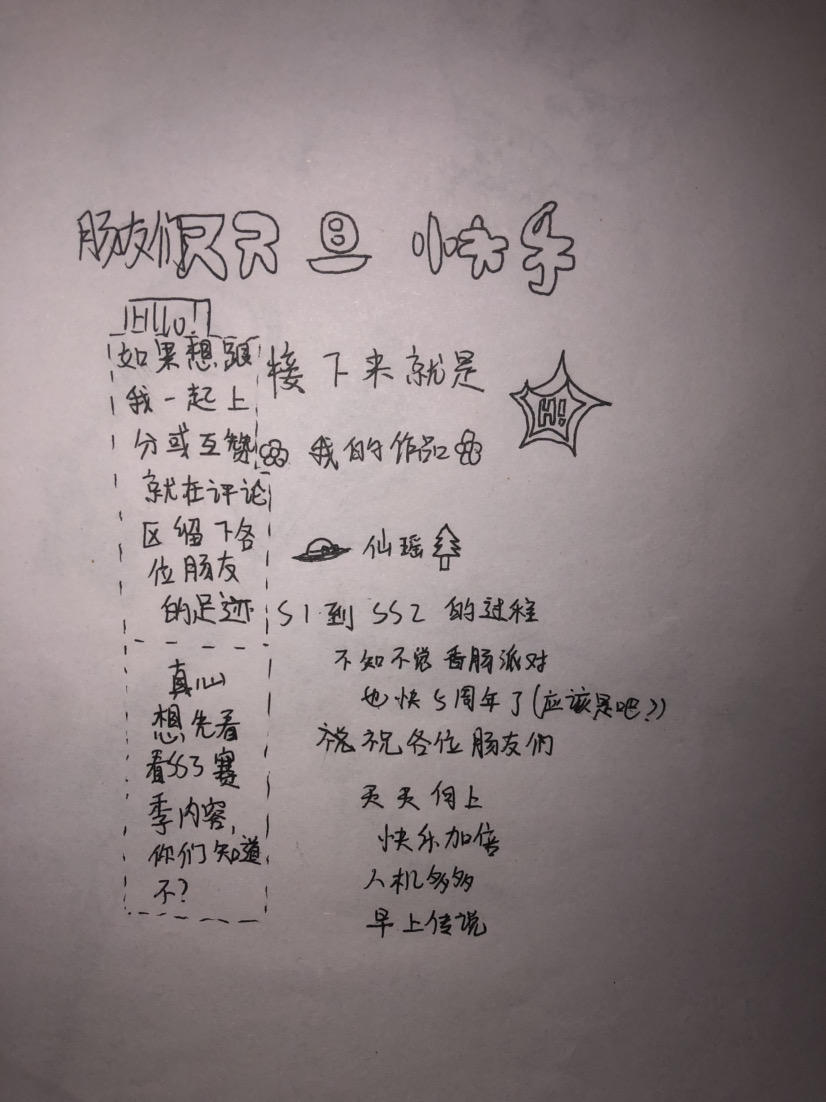 肠友们元旦快乐
Hello!
如果想跟
我一起上
分或互赞
就在评论
区留下各
位肠友
的足迹
真心
想先看
看SS3赛
季内容,
你们知道
不?
接下来就是
Hi!
我的作品
仙瑶
S1到SS2的过程
不知不觉香肠派对
也快5周年了(应该是吧?)
祝祝各位肠友们
天天向上
快乐加倍
人机多多
早上传说